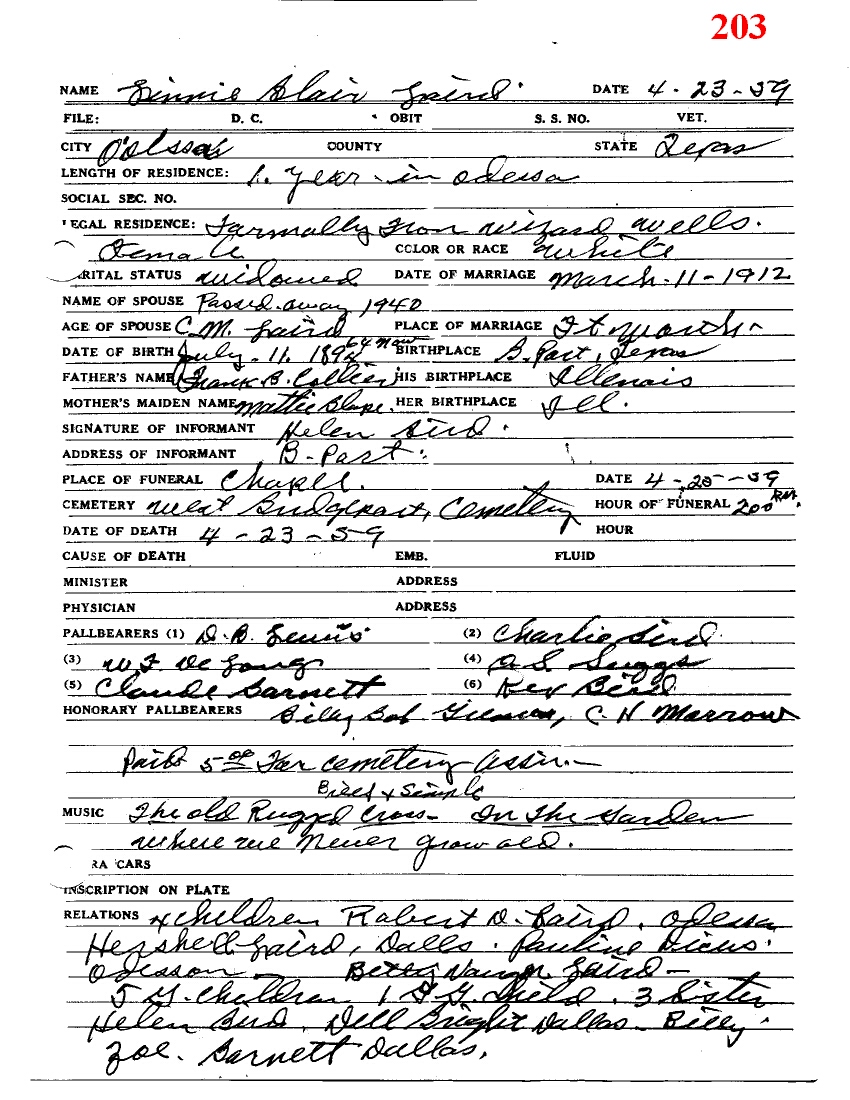 203
NAME Blair Laird DATE 4-23-59
FILE: D. C. OBIT S. S. NO. VET.
CITY Odessa COUNTY STATE Texas
LENGTH OF RESIDENCE: 1. year in odessa
SOCIAL SEC. NO.
EGAL RESIDENCE: Formally from wizard wells.
COLOR OR RACE white
RITAL STATUS widowed DATE OF MARRIAGE March-11-1912
NAME OF SPOUSE Passed away 1940
AGE OF SPOUSE C.M. Laird PLACE OF MARRIAGE Ft worth
DATE OF BIRTH July-11. 1894 64 now BIRTHPLACE B.Port, Texas
FATHER'S NAME Frank B. Collier HIS BIRTHPLACE Illenois
MOTHER'S MAIDEN NAME Mattie HER BIRTHPLACE Ill.
SIGNATURE OF INFORMANT Helen Bird.
ADDRESS OF INFORMANT B-Port.
PLACE OF FUNERAL Chapel. DATE 4-25-59
CEMETERY West Bridgeport, Cemetery HOUR OF FUNERAL 200 P.M.
DATE OF DEATH 4-23-59 HOUR
CAUSE OF DEATH EMB. FLUID
MINISTER ADDRESS
PHYSICIAN ADDRESS
PALLBEARERS (1) D.B. Lewis (2) Charlie Bird
(3) W.F. De Long (4) Suggs
(5) Claude Barnett (6) Rex Bird
HONORARY PALLBEARERS Billy Bob C. H Morrow
Paid 5 00 For cemetery assin.
Bried & Simple
MUSIC The old Rugged Cross- In The Garden
where we never grow old.
RA CARS
INSCRIPTION ON PLATE
RELATIONS 4 children Robert D. Laird. Odessa
Hershell Laird, Dalls. Pauline
Betty Laird-
5 G. Children 1 3 Sister
Helen Bird. Dell Bright Dallas- Billy
Zoe. Barnett Dallas.